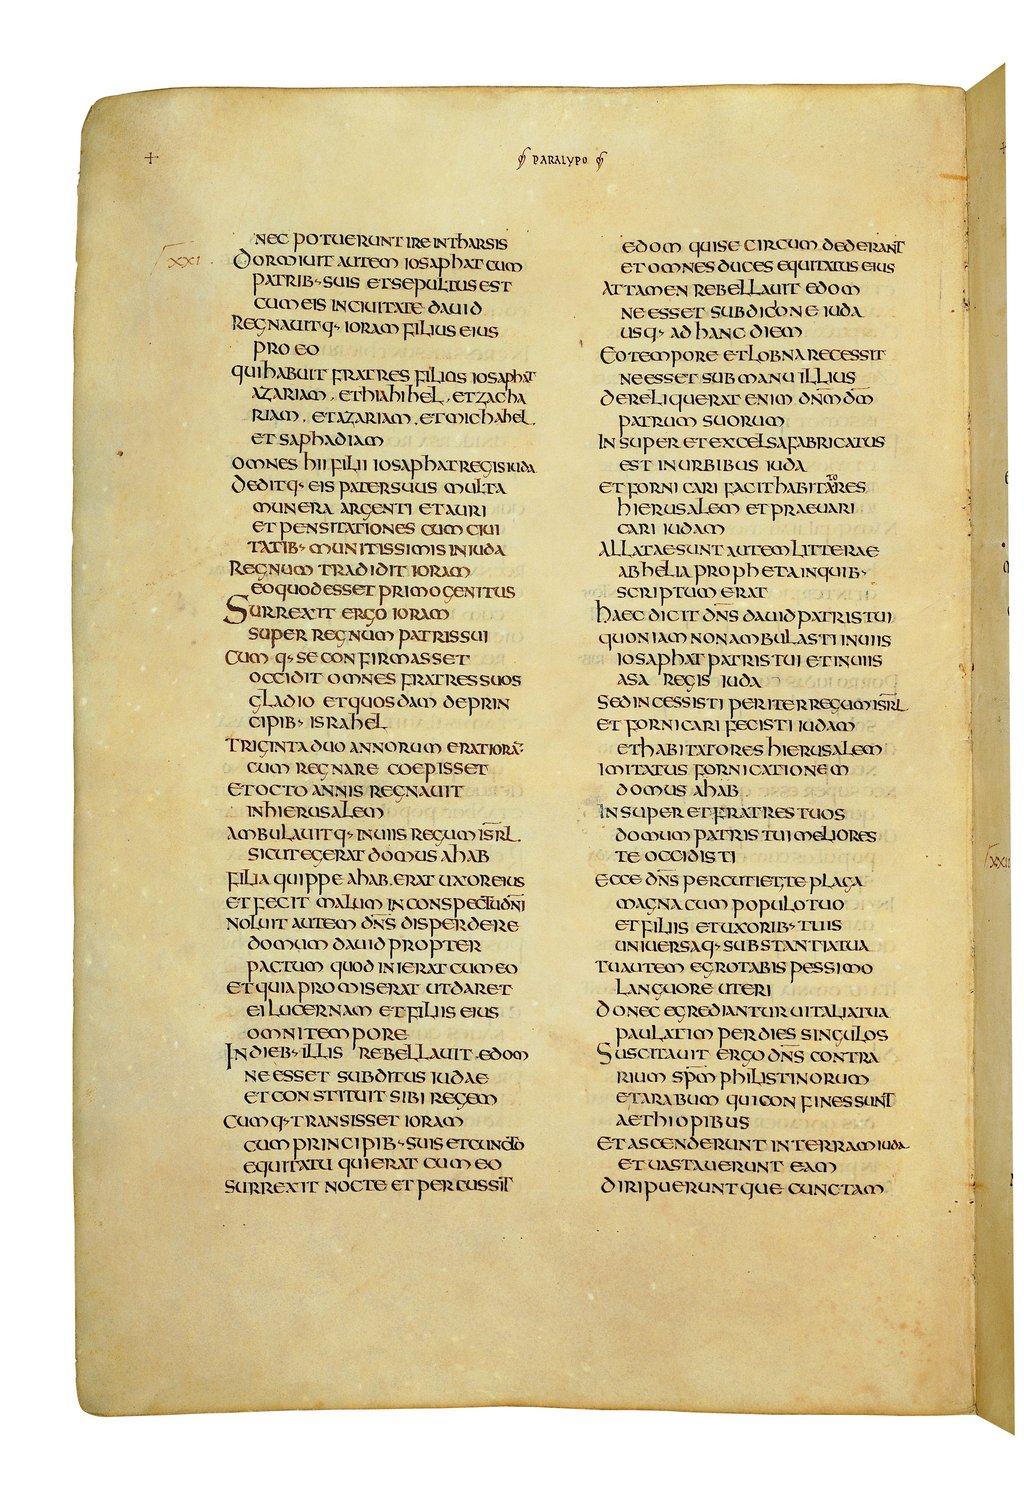 PARALYPO
NEC POTUERUNT IRE IN THARSIS
XXI
DORMIUIT AUTEM IOSAPHAT CUM
PATRIB· SUIS ET SEPULTUS EST
CUM EIS IN CIUITATE DAUID
REGNAUITQ· IORAM FILIUS EIUS
PRO EO
QUI HABUIT FRATRES FILIOS IOSAPHAT
AZARIAM . ET HIAHIHEL . ET ZACHA
RIAM . ET AZARIAM . ET MICHAHEL .
ET SAPHADIAM
OMNES HII FILII IOSAPHAT REGIS IUDA
DEDITQ· EIS PATER SUUS MULTA
MUNERA ARGENTI ET AURI
ET PENSITATIONES CUM CIUI
TATIB· MUNITISSIMIS IN IUDA
REGNUM TRADIDIT IORAM
EO QUOD ESSET PRIMOGENITUS
SURREXIT ERGO IORAM
SUPER REGNUM PATRIS SUI
CUMQ· SE CONFIRMASSET
OCCIDIT OMNES FRATRES SUOS
GLADIO ET QUOSDAM DE PRIN
CIPIB· ISRAHEL
TRIGINTA DUO ANNORUM ERAT IORĀ·
CUM REGNARE COEPISSET
ET OCTO ANNIS REGNAUIT
IN HIERUSALEM
AMBULAUITQ· IN UIIS REGUM ISR̄L .
SICUT EGERAT DOMUS AHAB
FILIA QUIPPE AHAB . ERAT UXOR EIUS
ET FECIT MALUM IN CONSPECTU DN̄I
NOLUIT AUTEM DN̄S DISPERDERE
DOMUM DAUID PROPTER
PACTUM QUOD INIERAT CUM EO
ET QUIA PROMISERAT UT DARET
EI LUCERNAM ET FILIIS EIUS
OMNI TEMPORE
IN DIEB· ILLIS REBELLAUIT . EDOM
NE ESSET SUBDITUS IUDAE
ET CONSTITUIT SIBI REGEM
CUMQ· TRANSISSET IORAM
CUM PRINCIPIB· SUIS ET CUNCTO
EQUITATU QUI ERAT CUM EO
SURREXIT NOCTE ET PERCUSSIT
EDOM QUI SE CIRCUMDEDERANT
ET OMNES DUCES EQUITATUS EIUS
ATTAMEN REBELLAUIT EDOM
NE ESSET SUB DICIONE IUDA
USQ· AD HANC DIEM
EO TEMPORE ET LOBNA RECESSIT
NE ESSET SUB MANU ILLIUS
DERELIQUERAT ENIM DN̄M DM̄
PATRUM SUORUM
INSUPER ET EXCELSA FABRICATUS
EST IN URBIBUS IUDA
ET FORNICARI FACIT HABITATORES
HIERUSALEM ET PRAEUARI
CARI IUDAM
ALLATAE SUNT AUTEM LITTERAE
AB HELIA PROPHETA IN QUIB·
SCRIPTUM ERAT
HAEC DICIT DN̄S DAUID PATRIS TUI
QUONIAM NON AMBULASTI IN UIIS
IOSAPHAT PATRIS TUI ET IN UIIS
ASA REGIS IUDA
SED INCESSISTI PER ITER REGUM ISR̄L
ET FORNICARI FECISTI IUDAM
ET HABITATORES HIERUSALEM
IMITATUS FORNICATIONEM
DOMUS AHAB
INSUPER ET FRATRES TUOS
DOMUM PATRIS TUI MELIORES
TE OCCIDISTI
ECCE DN̄S PERCUTIET TE PLAGA
MAGNA CUM POPULO TUO
ET FILIIS ET UXORIB· TUIS
UNIUERSAQ· SUBSTANTIA TUA
TU AUTEM EGROTABIS PESSIMO
LANGUORE UTERI
DONEC EGREDIANTUR UITALIA TUA
PAULATIM PER DIES SINGULOS
SUSCITAUIT ERGO DN̄S CONTRA
RIUM SPM̄ PHILISTINORUM
ET ARABUM QUI CONFINES SUNT
AETHIOPIBUS
ET ASCENDERUNT IN TERRAM IUDA
ET UASTAUERUNT EAM
DIRIPUERUNTQUE CUNCTAM